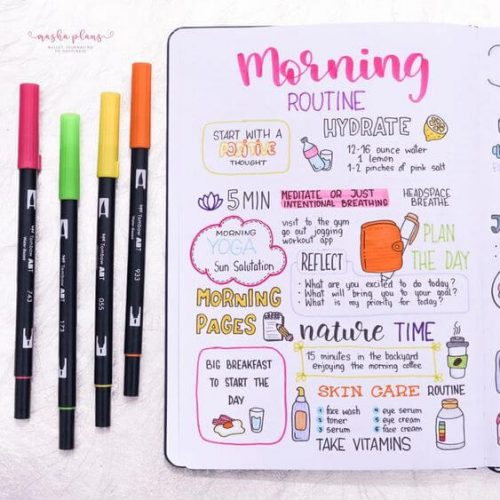 masha plans
BULLET JOURNALING
TO HAPPINESS
Morning
ROUTINE
START WITH A
POSITIVE
THOUGHT
HYDRATE
12-16 ounce water
1 lemon
1-2 pinches of pink salt
5 MIN
MEDITATE OR JUST
INTENTIONAL BREATHING
HEADSPACE
BREATHE
MORNING
YOGA
Sun Salutation
visit to the gym
go out jogging
workout app
PLAN
THE DAY
REFLECT
• What are you excited to do today?
• What will bring you to your goal?
• What is my priority for today?
MORNING
PAGES
nature TIME
15 minutes in the backyard
enjoying the morning coffee
BIG BREAKFAST
TO START THE
DAY
SKIN CARE ROUTINE
1 face wash
2 toner
3 serum
4 eye serum
5 eye cream
6 face cream
TAKE VITAMINS
Tombow ABT
743
Tombow ABT
173
Tombow ABT
055
Tombow ABT
933